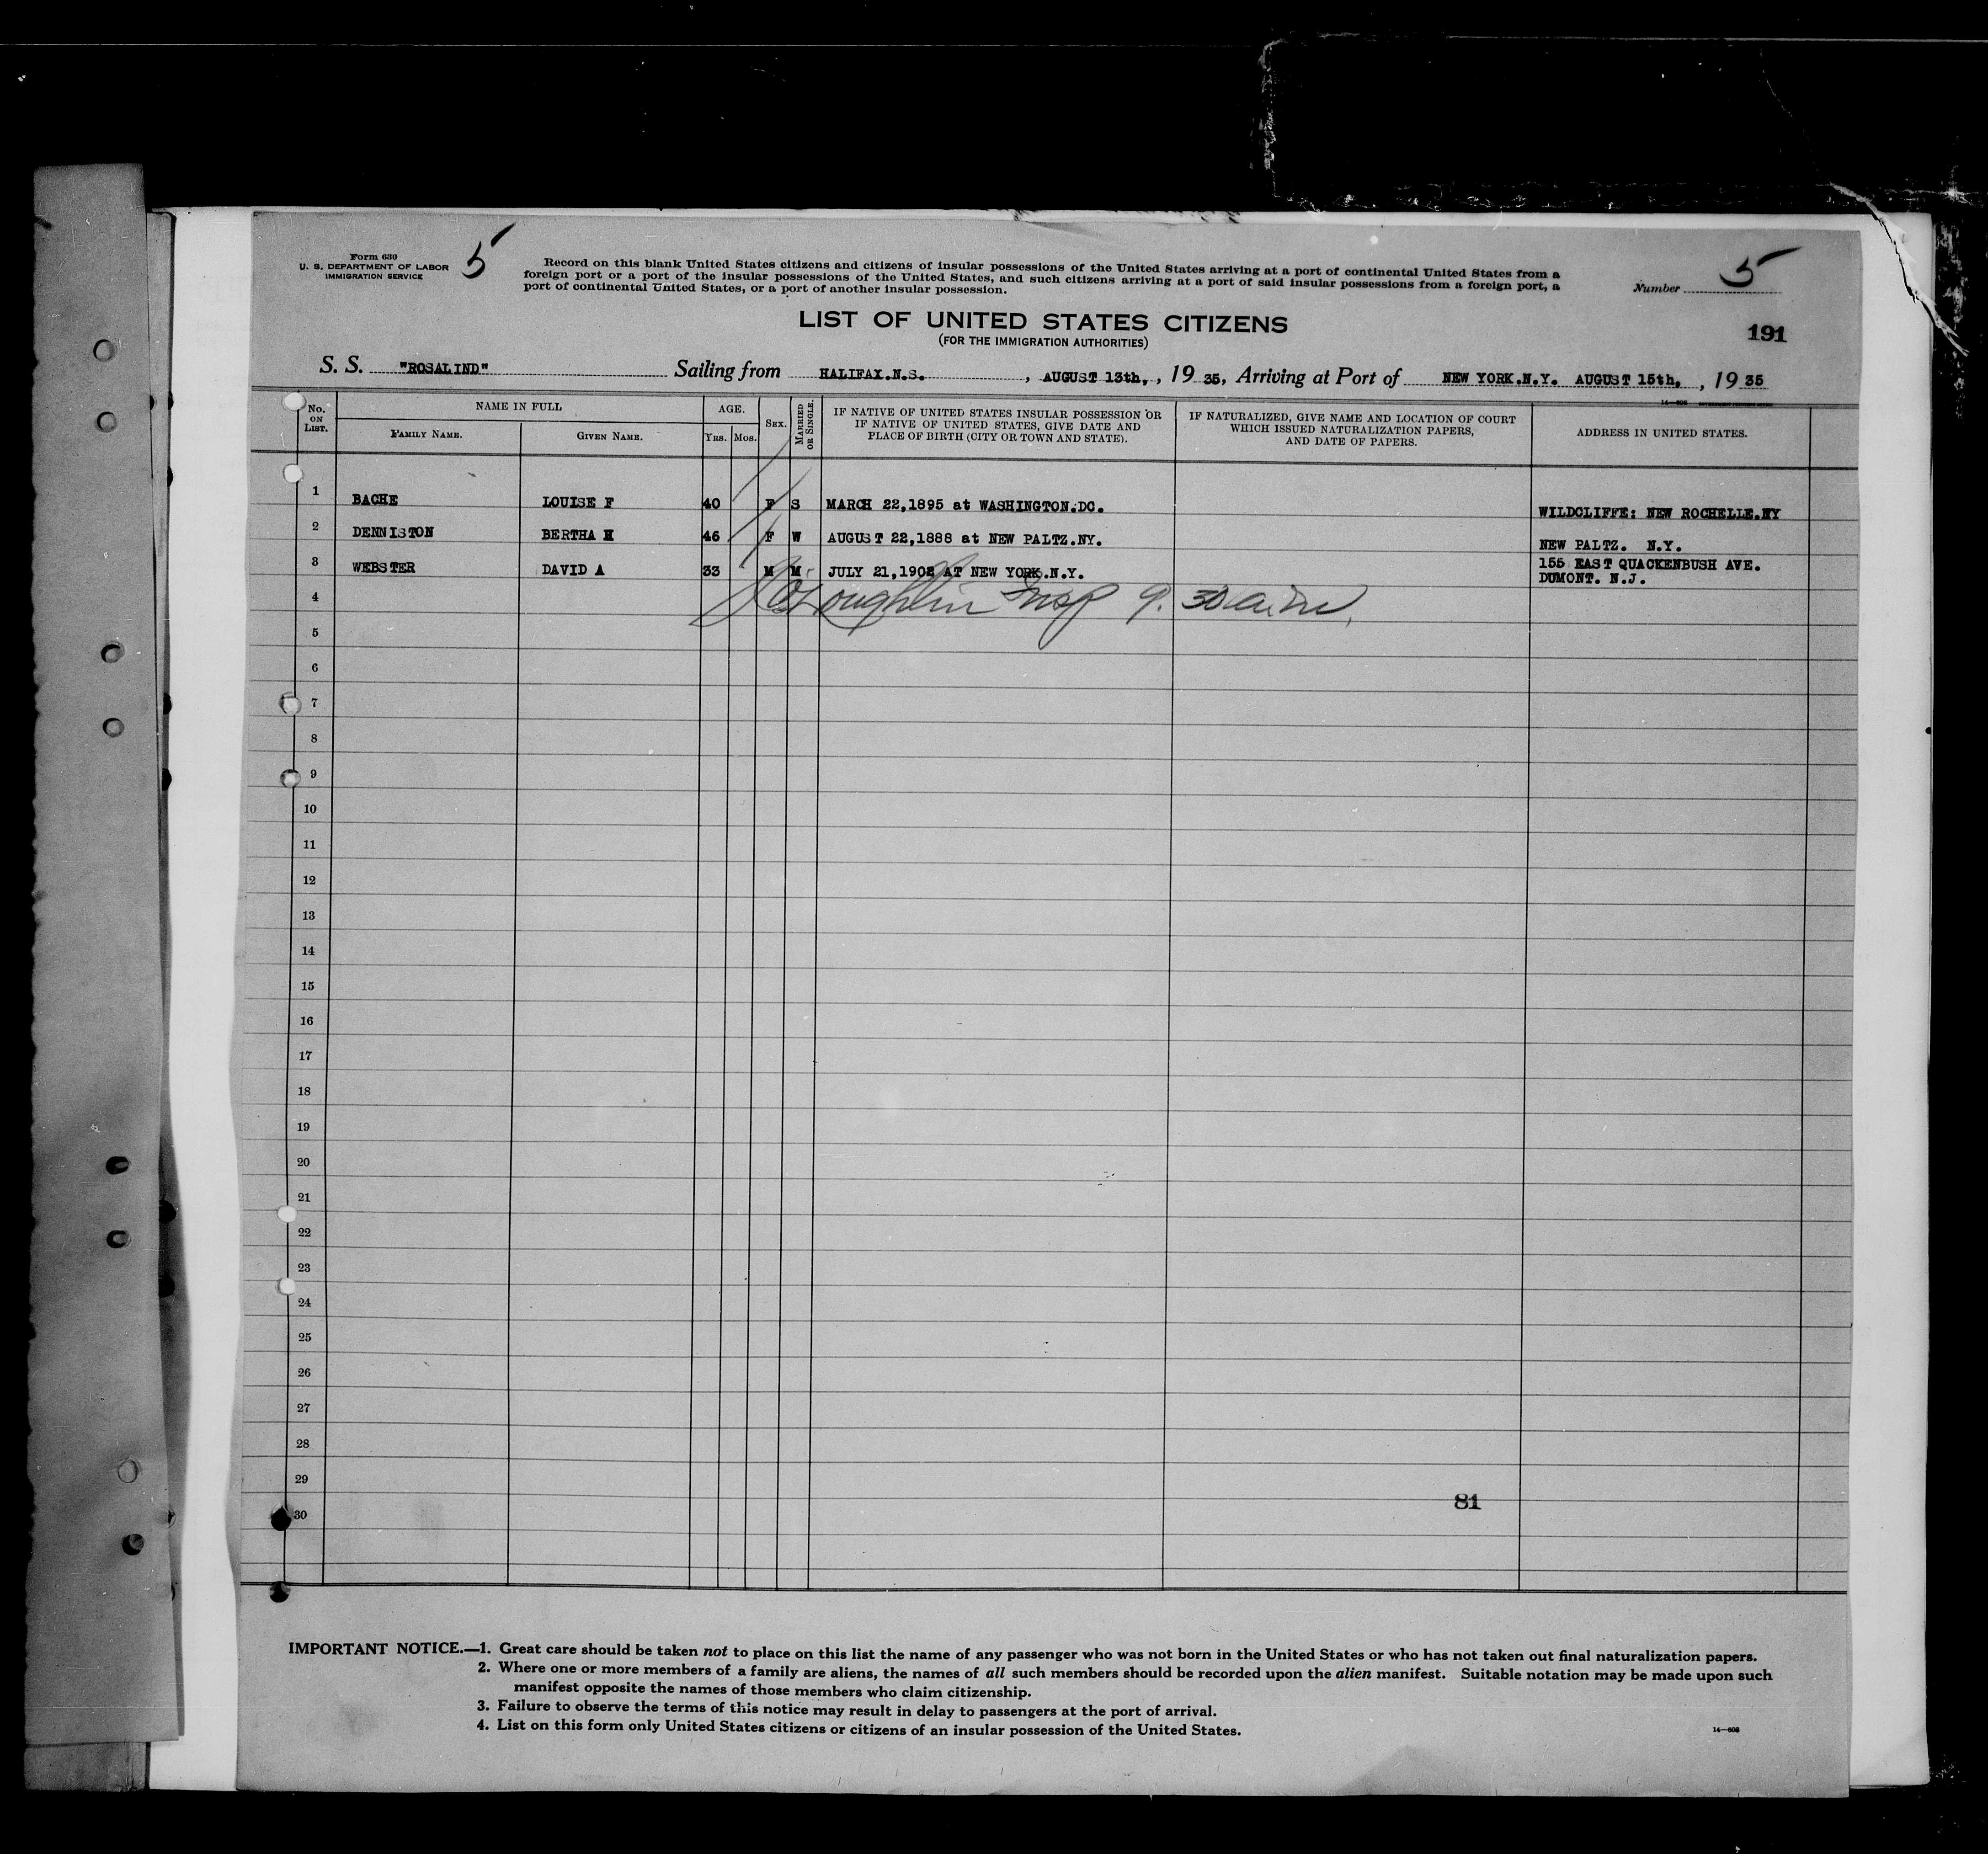 Form 630
U. S. DEPARTMENT OF LABOR
IMMIGRATION SERVICE
5
Record on this blank United States citizens and citizens of insular possessions of the United States arriving at a port of continental United States from a
foreign port or a port of the insular possessions of the United States, and such citizens arriving at a port of said insular possessions from a foreign port, a
port of continental United States, or a port of another insular possession.
Number 5
LIST OF UNITED STATES CITIZENS
(FOR THE IMMIGRATION AUTHORITIES)
191
S. S. "ROSALIND" Sailing from HALIFAX.N.S. , AUGUST 13th, , 19 35, Arriving at Port of NEW YORK.N.Y. AUGUST 15th, , 19 35
14—608
No. ON LIST. NAME IN FULL AGE. SEX. MARRIED OR SINGLE. IF NATIVE OF UNITED STATES INSULAR POSSESSION OR IF NATIVE OF UNITED STATES, GIVE DATE AND PLACE OF BIRTH (CITY OR TOWN AND STATE). IF NATURALIZED, GIVE NAME AND LOCATION OF COURT WHICH ISSUED NATURALIZATION PAPERS, AND DATE OF PAPERS. ADDRESS IN UNITED STATES.
FAMILY NAME. GIVEN NAME. YRS. MOS.
1 BACHE LOUISE F 40 F S MARCH 22,1895 at WASHINGTON.DC. WILDCLIFFE: NEW ROCHELLE.NY
2 DENNISTON BERTHA H 46 F W AUGUST 22,1888 at NEW PALTZ.NY. NEW PALTZ. N.Y.
3 WEBSTER DAVID A 33 M M JULY 21,1902 AT NEW YORK.N.Y. 155 EAST QUACKENBUSH AVE.
DUMONT. N.J.
4 Loughlin Insp 9.30 a.m.
5
6
7
8
9
10
11
12
13
14
15
16
17
18
19
20
21
22
23
24
25
26
27
28
29
81
30
IMPORTANT NOTICE.—1. Great care should be taken not to place on this list the name of any passenger who was not born in the United States or who has not taken out final naturalization papers.
2. Where one or more members of a family are aliens, the names of all such members should be recorded upon the alien manifest. Suitable notation may be made upon such
manifest opposite the names of those members who claim citizenship.
3. Failure to observe the terms of this notice may result in delay to passengers at the port of arrival.
4. List on this form only United States citizens or citizens of an insular possession of the United States.
14—608